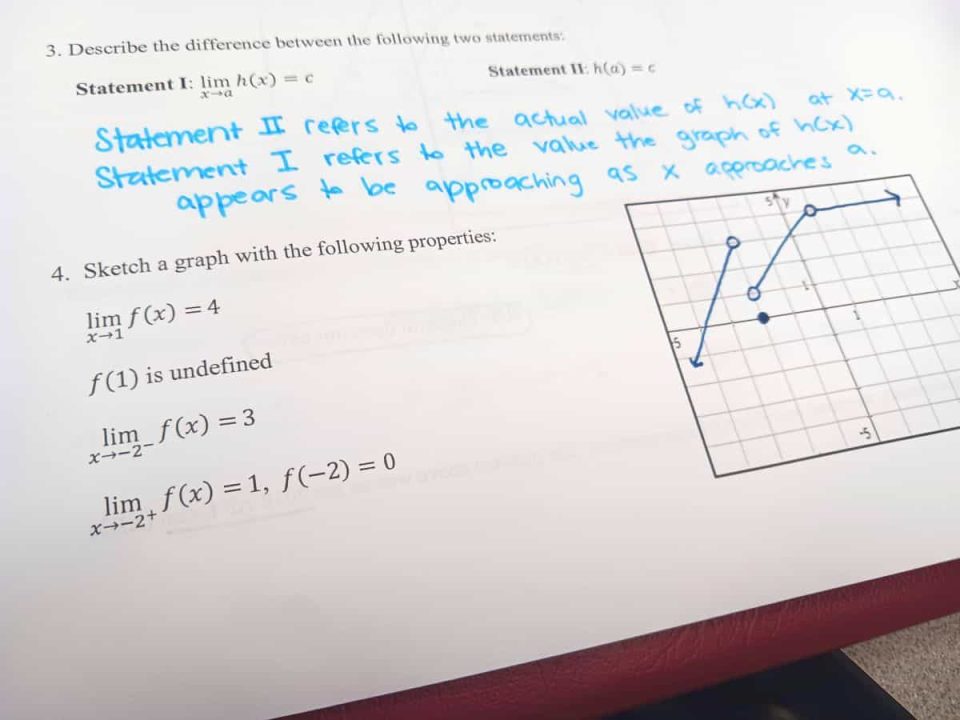 3. Describe the difference between the following two statements:
Statement I: lim h(x) = c
x→a
Statement II: h(a) = c
Statement II refers to the actual value of h(x) at x=a.
Statement I refers to the value the graph of h(x)
appears to be approaching as x approaches a.
4. Sketch a graph with the following properties:
lim f(x) = 4
x→1
f(1) is undefined
lim f(x) = 3
x→−2⁻
lim f(x) = 1, f(−2) = 0
x→−2⁺
5 y
1
x
1
5
-5